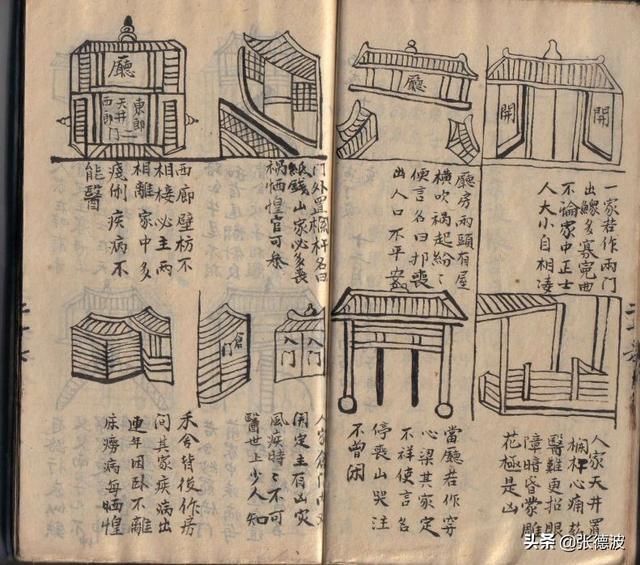 開
開
一家若作兩門
出鰥多寡寃曲
不論家中正士
人大小自相凌
廳
廳房兩頭有屋
橫吹禍起紛〻
便言名曰邦喪
出人口不平
人家天井置
欄杆心痛
醫難更招眼
障暗昏蒙雕
花極是凶
當廳若作穿
心梁其家定
不祥使言名
停喪山哭注
不曾闲
門外置杆名曰
紙錢山家必多喪
禍恓惶官可
廳
東郎
天井
门
西郎
西廊壁枋不
相接必主兩
相離家中多
疾病不
能醫
入门
入门
倉门
人家倉门
闲定主有凶灾
風疾時〻不可
醫世上少人知
禾舍皆後作房
问其家疾病出
連年困卧不離
床癆病每恓惶
头条 @张德波